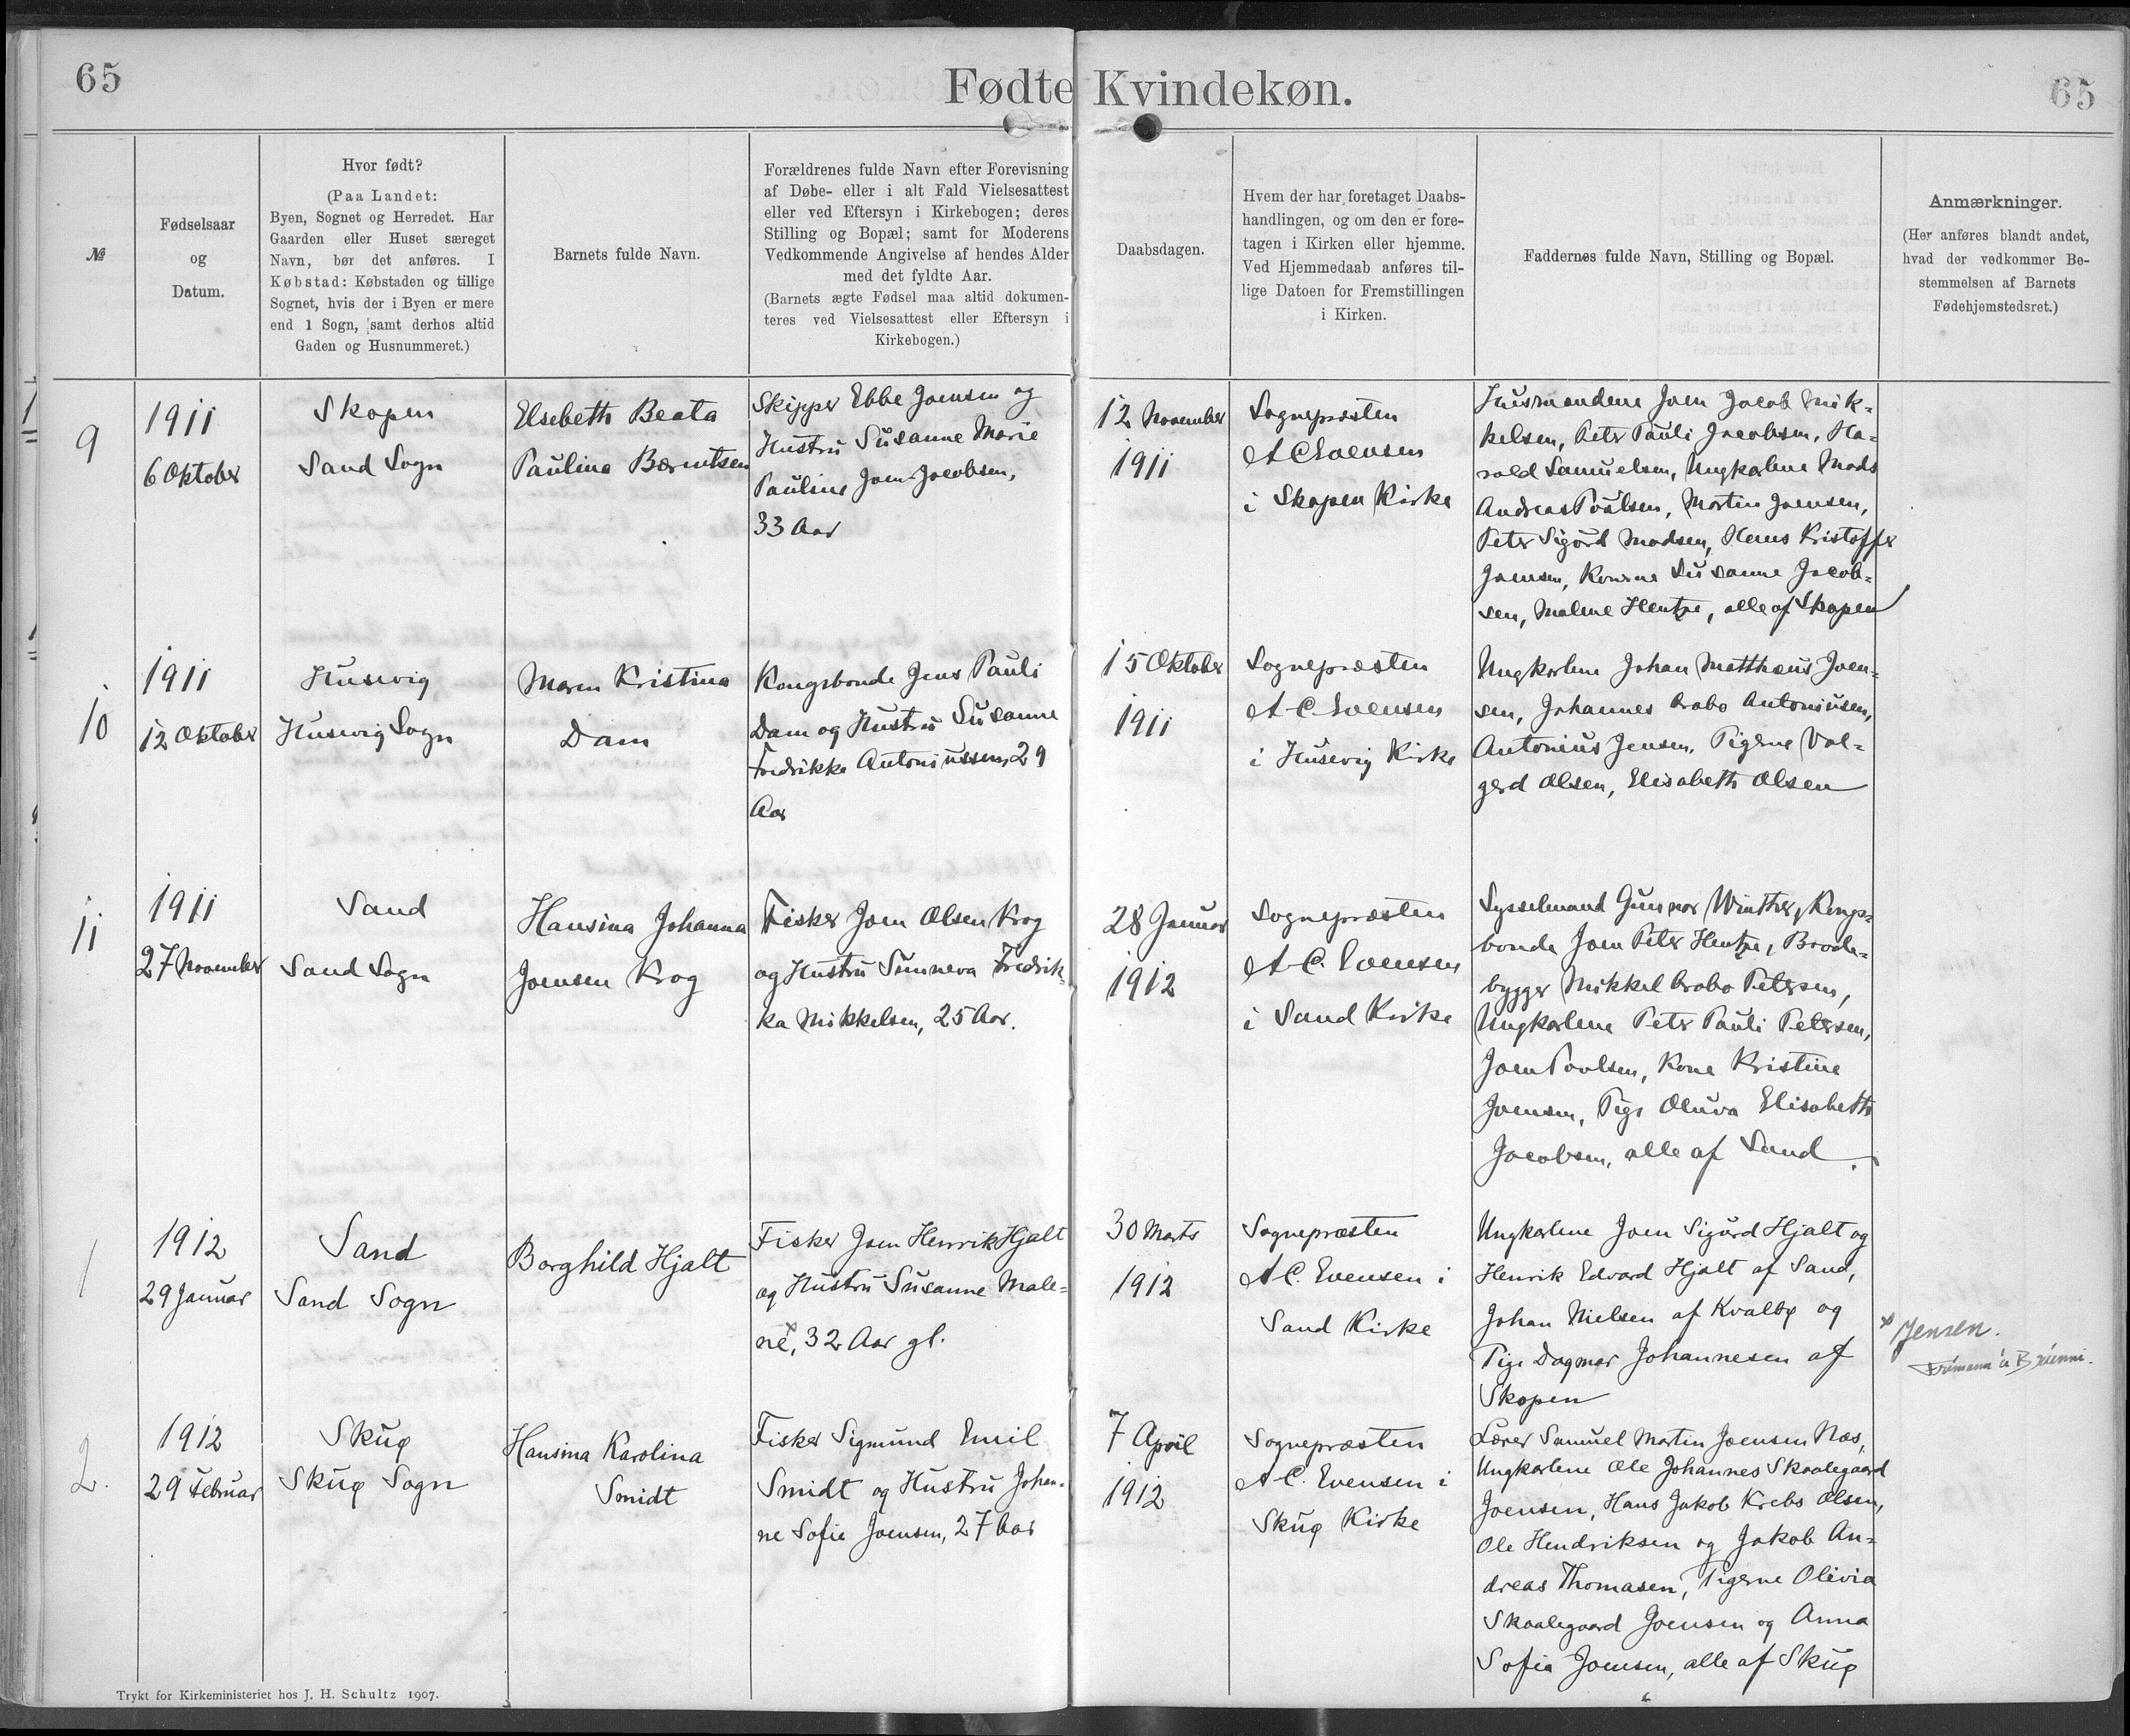 65
Fødte Kvindekøn.
65
№
Fødselsaar
og
Datum.
Hvor født?
(Paa Landet:
Byen, Sognet og Herredet. Har
Gaarden eller Huset særeget
Navn, bør det anføres. I
Købstad: Købstaden og tillige
Sognet, hvis der i Byen er mere
end 1 Sogn, samt derhos altid
Gaden og Husnummeret.)
Barnets fulde Navn.
Forældrenes fulde Navn efter Forevisning
af Døbe- eller i alt Fald Vielsesattest
eller ved Eftersyn i Kirkebogen; deres
Stilling og Bopæl; samt for Moderens
Vedkommende Angivelse af hendes Alder
med det fyldte Aar.
(Barnets ægte Fødsel maa altid dokumen-
teres ved Vielsesattest eller Eftersyn i
Kirkebogen.)
Daabsdagen.
Hvem der har foretaget Daabs-
handlingen, og om den er fore-
tagen i Kirken eller hjemme.
Ved Hjemmedaab anføres til-
lige Datoen for Fremstillingen
i Kirken.
Faddernes fulde Navn, Stilling og Bopæl.
Anmærkninger.
(Her anføres blandt andet,
hvad der vedkommer Be-
stemmelsen af Barnets
Fødehjemstedsret.)
9
1911
6 Oktober
Skopen
Sand Sogn
Elsebeth Beata
Paulina Bærentsen
Skipper Ebbe Joensen og
Hustru Susanne Marie
Pauline Joen-Jacobsen,
33 Aar
12 November
1911
Sognepræsten
A C Evensen
i Skopen Kirke
Husmændene Joen Jacob Mik-
kelsen, Peter Pauli Jacobsen, Ha-
rald Samuelsen, Ungkarlene Mads
Andreas Poulsen, Martin Joensen,
Peter Sigurd Madsen, Hans Kristoffer
Joensen, Konerne Susanne Jacob-
sen, Malene Hentze, alle af Skopen
10
1911
12 Oktober
Husevig
Husevig Sogn
Maren Kristina
Dam
Kongsbonde Jens Pauli
Dam og Hustru Susanne
Fredrikke Antoniussen, 29
Aar
15 Oktober
1911
Sognepræsten
A. C. Evensen
i Husevig Kirke
Ungkarlene Johan Matthæus Joen-
sen, Johannes Krabo Antoniusen,
Antonius Jensen, Pigerne Val-
gerd Olsen, Elisabeth Olsen
11
1911
27 November
Sand
Sand Sogn
Hansina Johanna
Joensen Krog
Fisker Joen Olsen Krog
og Hustru Sunneva Fredrik-
ka Mikkelsen, 25 Aar.
28 Januar
1912
Sognepræsten
A. C. Evensen
i Sand Kirke
Sysselmand Gunnar Winther, Kongs-
bonde Joen Peter Hentze, Baade-
bygger Mikkel Krabo Petersen,
Ungkarlene Peter Pauli Petersen,
Joen Poulsen, Kone Kristine
Joensen, Pige Oluva Elisabeth
Jacobsen, alle af Sand.
1
1912
29 Januar
Sand
Sand Sogn
Borghild Hjalt
Fisker Joen Henrik Hjalt
og Hustru Susanne Male-
ne×, 32 Aar gl.
30 Marts
1912
Sognepræsten
A. C. Evensen i
Sand Kirke
Ungkarlene Joen Sigurd Hjalt og
Henrik Edvard Hjalt af Sand,
Johan Nielsen af Kvalbø og
Pige Dagmar Johannesen af
Skopen
× Jensen.
2.
1912
29 Februar
Skuø
Skuø Sogn
Hansina Karolina
Smidt
Fisker Sigmund Emil
Smidt og Hustru Johan-
ne Sofie Joensen, 27 Aar
7 April
1912
Sognepræsten
A. C. Evensen i
Skuø Kirke
Lærer Samuel Martin Joensen Næs,
Ungkarlene Ole Johannes Skaalegaard
Joensen, Hans Jakob Krebs Olsen,
Ole Hendriksen og Jakob An-
dreas Thomasen, Pigerne Olivia
Skaalegaard Joensen og Anna
Sofia Joensen, alle af Skuø
Trykt for Kirkeministeriet hos J. H. Schultz 1907.